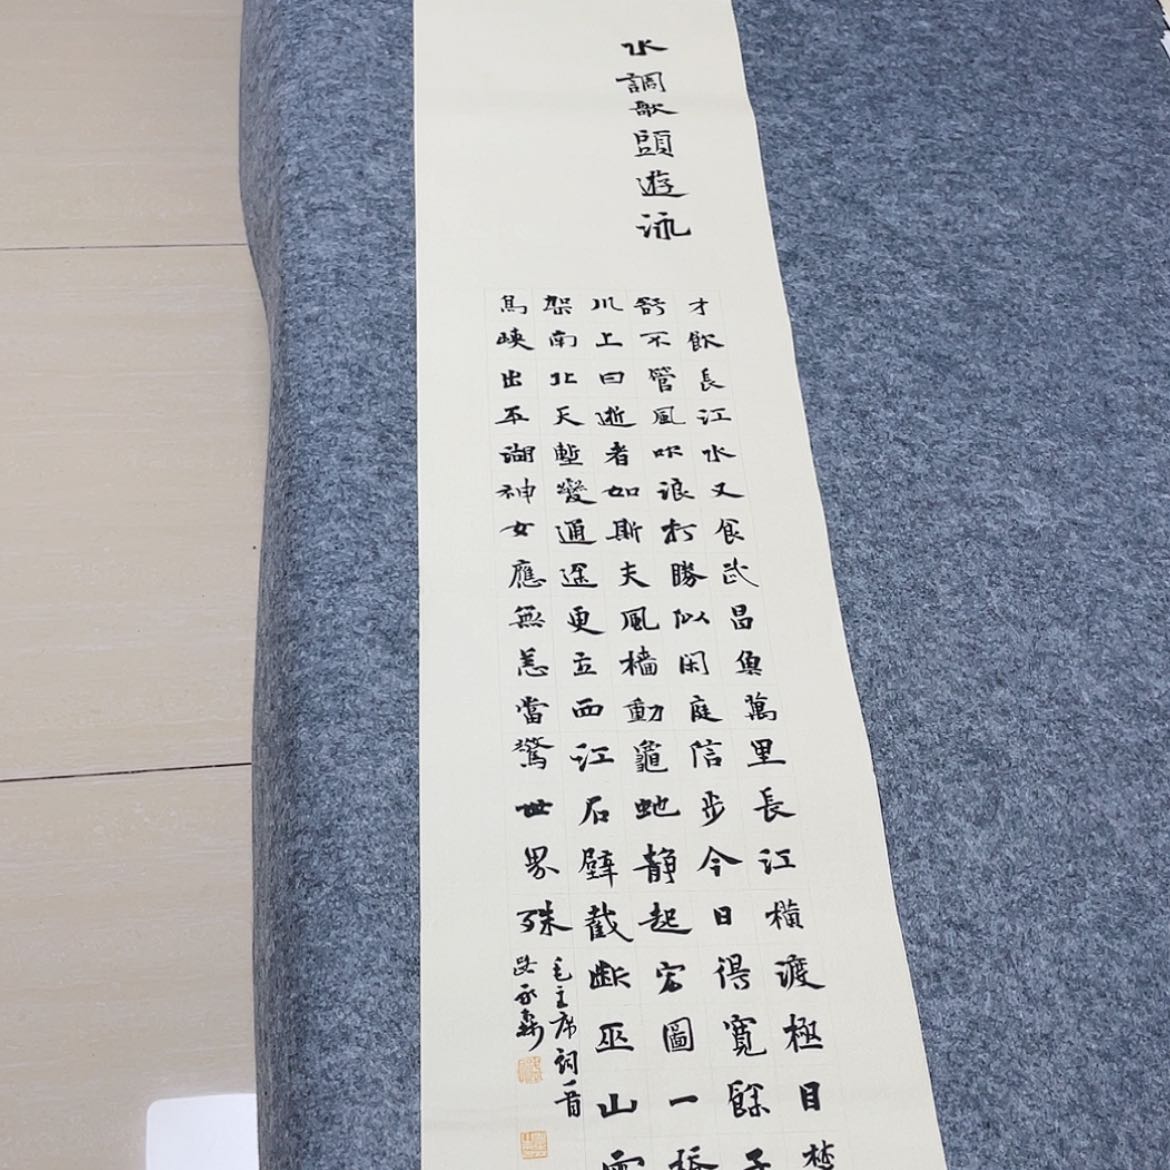 水調歌頭遊泳
才飲長江水又食武昌魚萬里長江橫渡極目楚
舒不管風吹浪打勝似閑庭信步今日得寬餘子
川上曰逝者如斯夫風檣動龜蛇静起宏圖一橋
架南北天塹變通途更立西江石壁截斷巫山雲
高峽出平湖神女應無恙當驚世界殊
毛主席詞一首